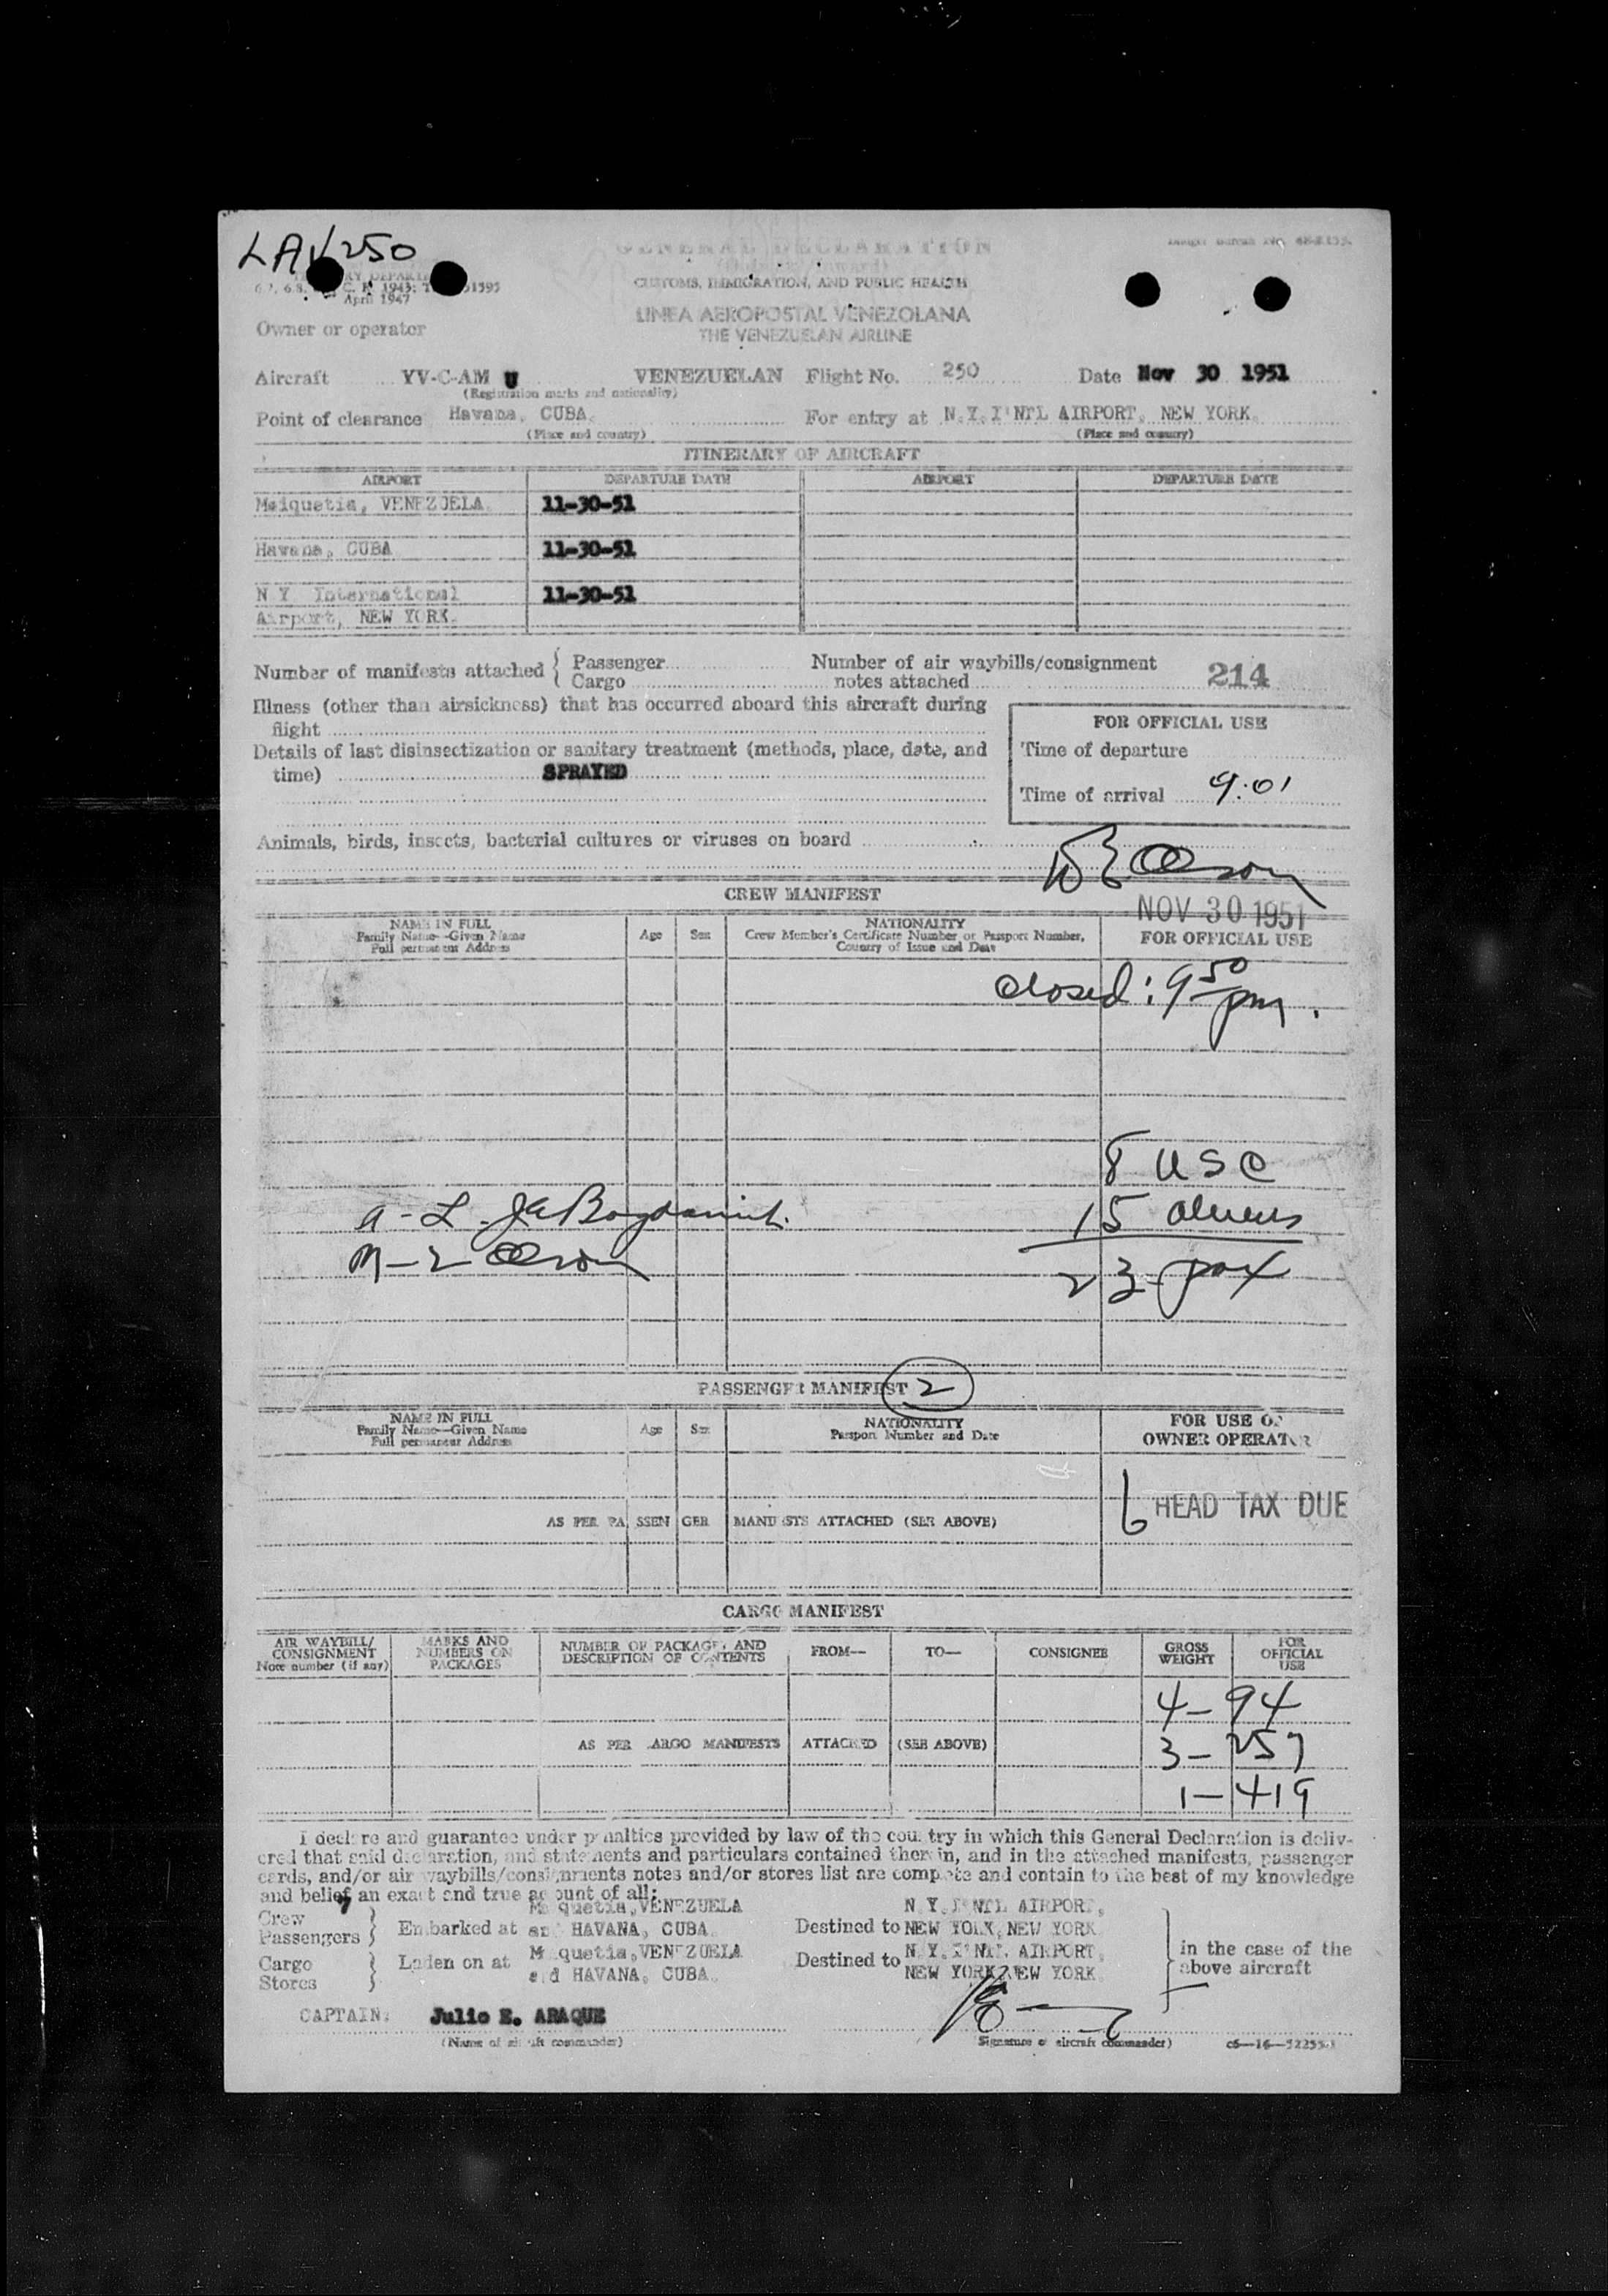 LAV 250
GENERAL DECLARATION
(Outward/Inward)
CUSTOMS, IMMIGRATION, AND PUBLIC HEALTH
April 1947
LINEA AEROPOSTAL VENEZOLANA
THE VENEZUELAN AIRLINE
Owner or operator
Aircraft YV-C-AM U VENEZUELAN Flight No. 250 Date Nov 30 1951
(Registration marks and nationality)
Point of clearance Havana, CUBA. For entry at N.Y.I'NTL AIRPORT, NEW YORK.
(Place and country) (Place and country)
ITINERARY OF AIRCRAFT
AIRPORT DEPARTURE DATE AIRPORT DEPARTURE DATE
Maiquetia, VENEZUELA. 11-30-51
Havana, CUBA 11-30-51
N Y International 11-30-51
Airport, NEW YORK.
Number of manifests attached { Passenger Number of air waybills/consignment 214
Cargo notes attached
Illness (other than airsickness) that has occurred aboard this aircraft during
flight
FOR OFFICIAL USE
Details of last disinsectization or sanitary treatment (methods, place, date, and
time) SPRAYED
Time of departure
Time of arrival 9:01
Animals, birds, insects, bacterial cultures or viruses on board
CREW MANIFEST
NOV 30 1951
NAME IN FULL Age Sex NATIONALITY FOR OFFICIAL USE
Family Name—Given Name Crew Member's Certificate Number or Passport Number,
Full permanent Address Country of Issue and Date
closed: 9 50 pm.
8 USC
15 aliens
23 pax
PASSENGER MANIFEST 2
NAME IN FULL Age Sex NATIONALITY FOR USE OF
Family Name—Given Name Passport Number and Date OWNER OPERATOR
Full permanent Address
6 HEAD TAX DUE
AS PER PA SSEN GER MANIF STS ATTACHED (SEE ABOVE)
CARGO MANIFEST
AIR WAYBILL/ CONSIGNMENT Note number (if any) MARKS AND NUMBERS ON PACKAGES NUMBER OF PACKAGES AND DESCRIPTION OF CONTENTS FROM— TO— CONSIGNEE GROSS WEIGHT FOR OFFICIAL USE
4-94
AS PER CARGO MANIFESTS ATTACHED (SEE ABOVE) 3-257
1-419
I declare and guarantee under penalties provided by law of the country in which this General Declaration is deliv-
ered that said declaration, and statements and particulars contained therein, and in the attached manifests, passenger
cards, and/or air waybills/consignments notes and/or stores list are complete and contain to the best of my knowledge
and belief an exact and true account of all:
Crew Maiquetia, VENEZUELA N.Y.I'NTL AIRPORT,
Passengers } Embarked at and HAVANA, CUBA. Destined to NEW YORK, NEW YORK
Cargo } Laden on at Maiquetia, VENEZUELA Destined to N.Y.I'NTL AIRPORT, in the case of the
Stores and HAVANA, CUBA. NEW YORK, NEW YORK. above aircraft
CAPTAIN: Julio E. ARAQUE
(Name of aircraft commander) Signature of aircraft commander)